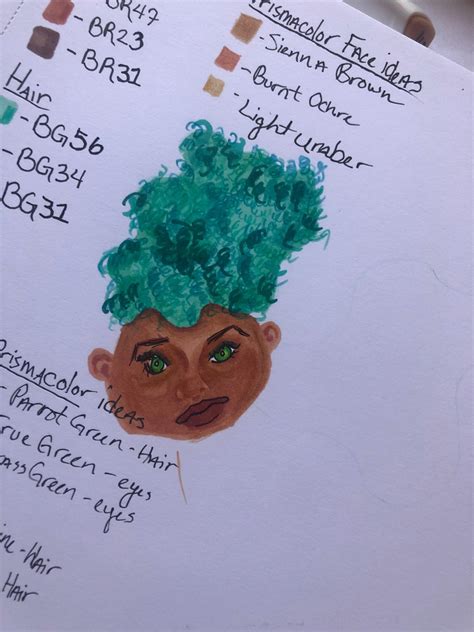 BR47
- BR23
- BR31
Hair
- BG56
- BG34
BG31
Prismacolor Face ideas
- Sienna Brown
- Burnt Ochre
- Light umber
Prismacolor ideas
- Parrot Green - Hair
True Green - eyes
Grass Green - eyes
- Hair
Hair